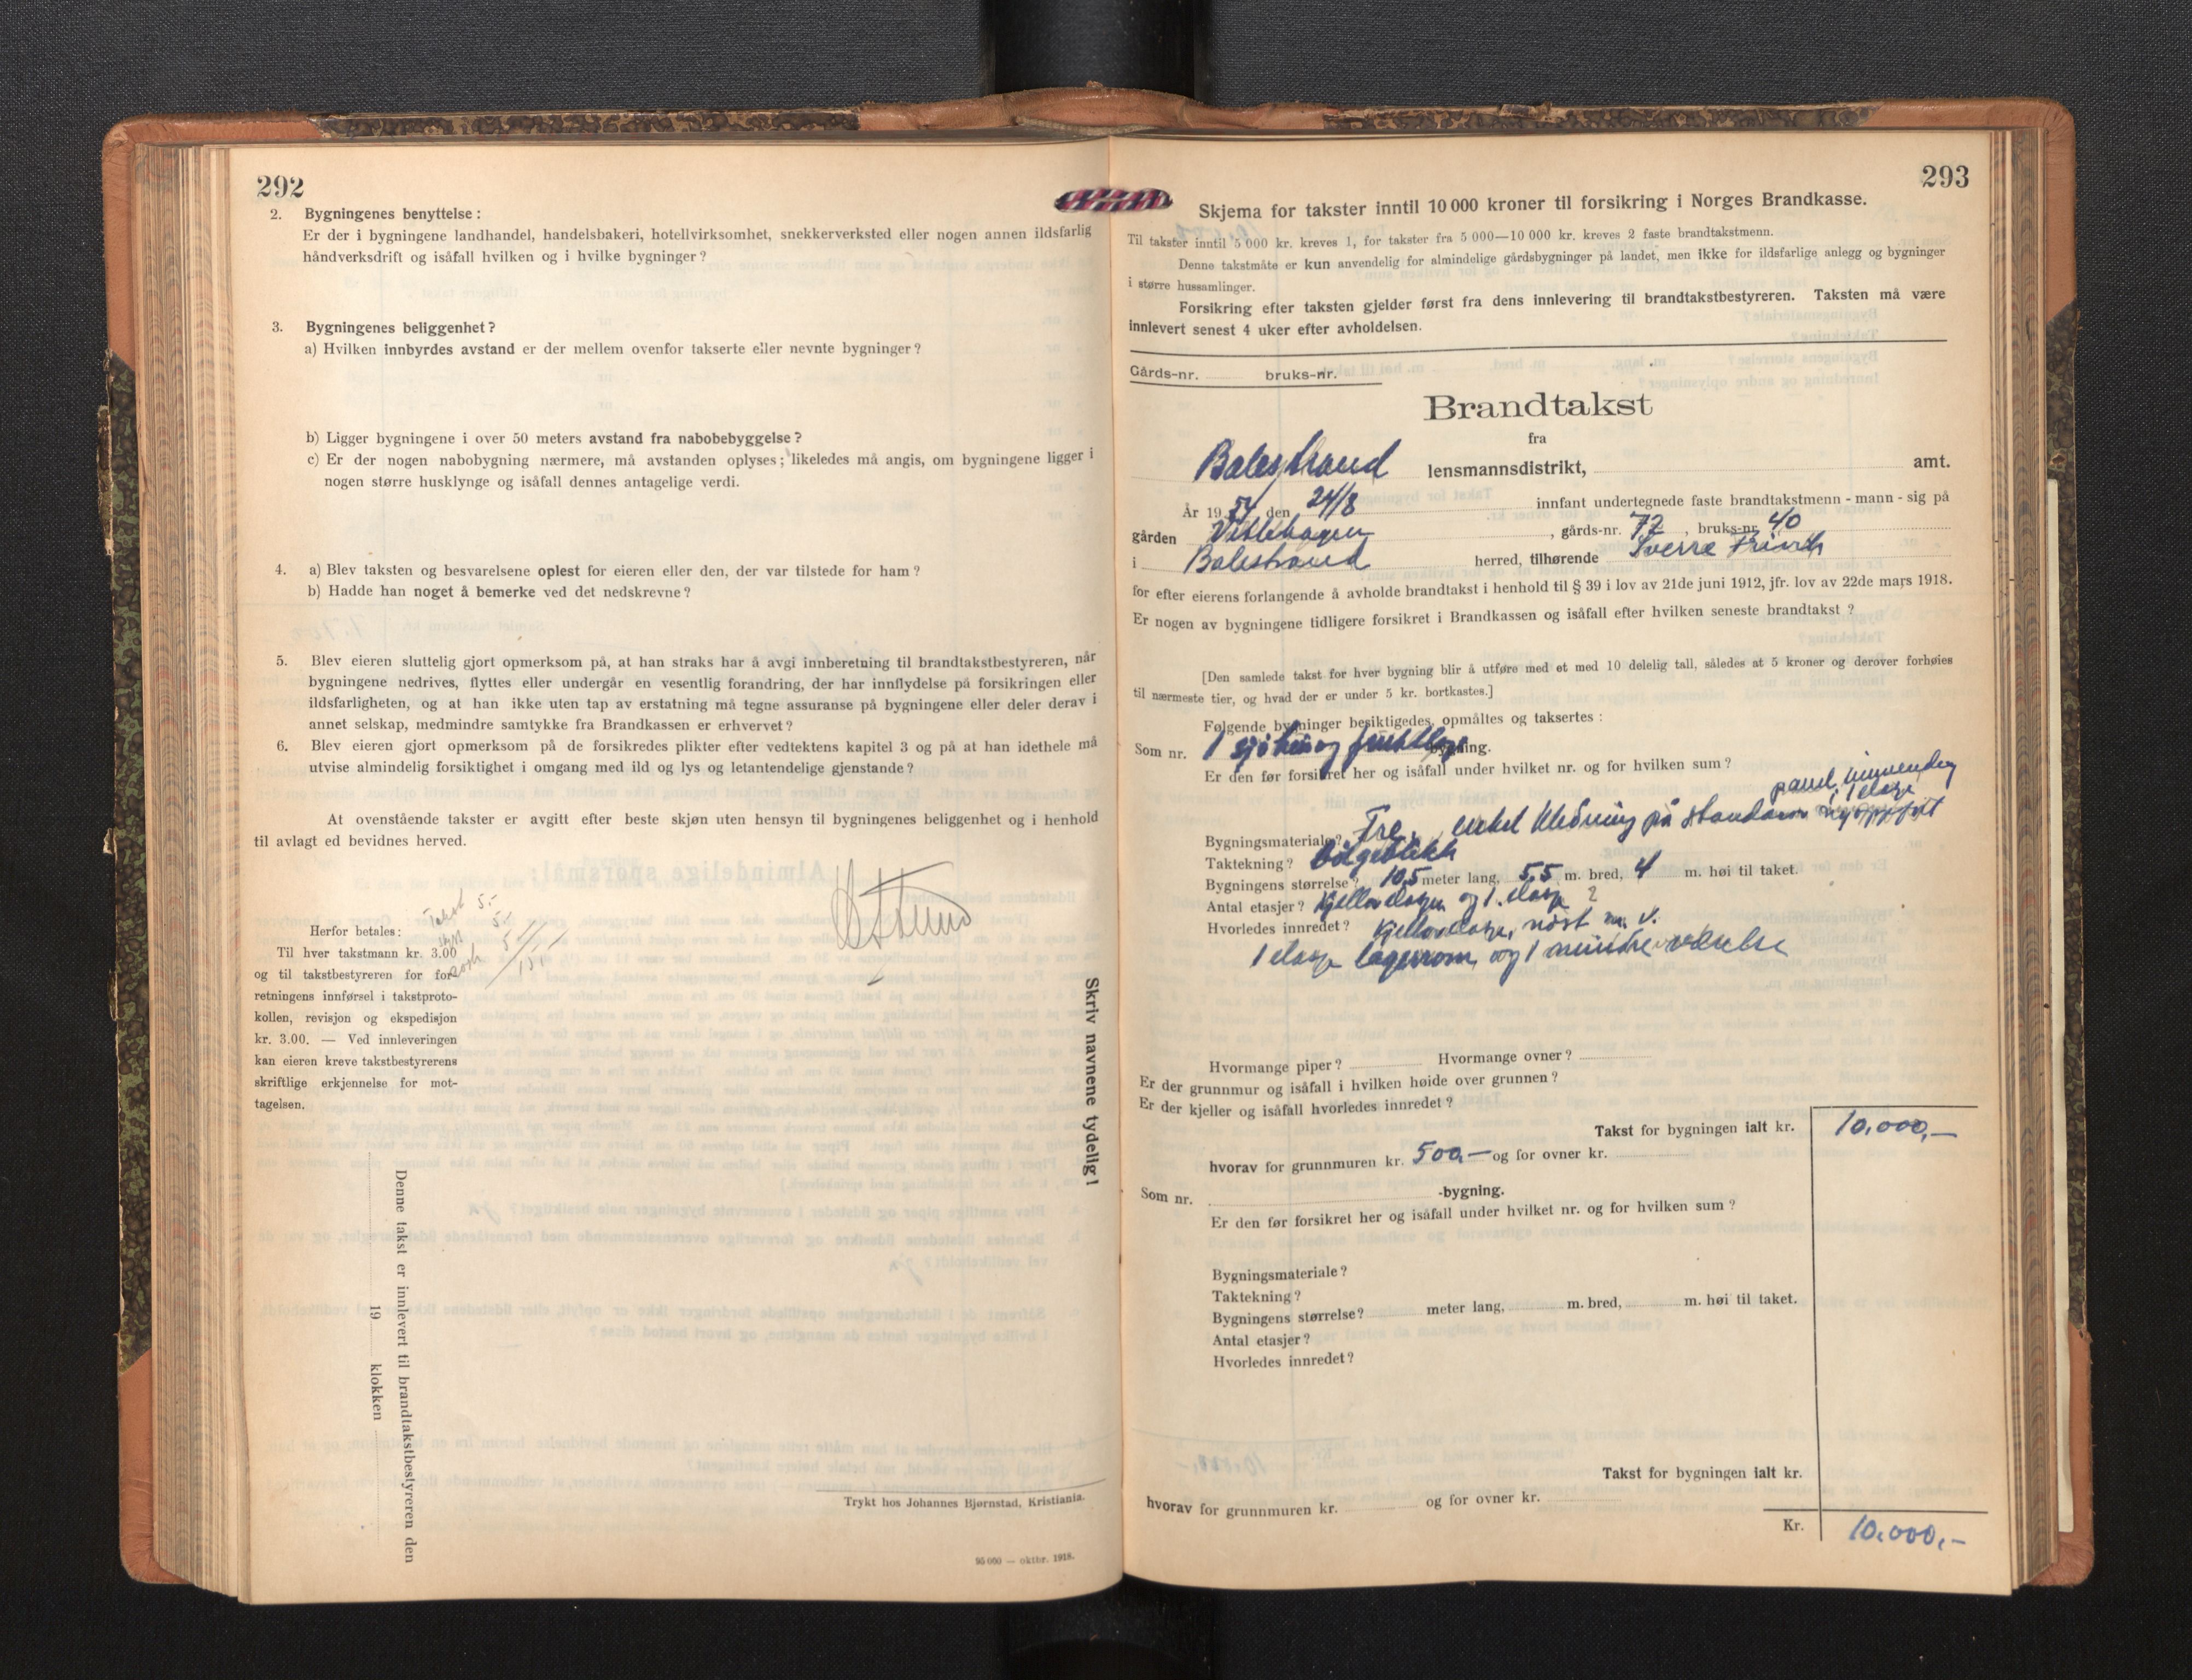 292
2. Bygningenes benyttelse :
Er der i bygningene landhandel, handelsbakeri, hotellvirksomhet, snekkerverksted eller nogen annen ildsfarlig
håndverksdrift og isåfall hvilken og i hvilke bygninger ?
3. Bygningenes beliggenhet ?
a) Hvilken innbyrdes avstand er der mellem ovenfor takserte eller nevnte bygninger ?
b) Ligger bygningene i over 50 meters avstand fra nabobebyggelse ?
c) Er der nogen nabobygning nærmere, må avstanden oplyses ; likeledes må angis, om bygningene ligger i
nogen større husklynge og isåfall dennes antagelige verdi.
4. a) Blev taksten og besvarelsene oplest for eieren eller den, der var tilstede for ham ?
b) Hadde han noget å bemerke ved det nedskrevne ?
5. Blev eieren sluttelig gjort opmerksom på, at han straks har å avgi innberetning til brandtakstbestyreren, når
bygningene nedrives, flyttes eller undergår en vesentlig forandring, der har innflydelse på forsikringen eller
ildsfarligheten, og at han ikke uten tap av erstatning må tegne assuranse på bygningene eller deler derav i
annet selskap, medmindre samtykke fra Brandkassen er erhvervet ?
6. Blev eieren gjort opmerksom på de forsikredes plikter efter vedtektens kapitel 3 og på at han idethele må
utvise almindelig forsiktighet i omgang med ild og lys og letantendelige gjenstande ?
At ovenstående takster er avgitt efter beste skjøn uten hensyn til bygningenes beliggenhet og i henhold
til avlagt ed bevidnes herved.
Takst 5.-
5.-
5
15,-
Herfor betales :
Til hver takstmann kr. 3.00
og til takstbestyreren for for-
retningens innførsel i takstproto-
kollen, revisjon og ekspedisjon
kr. 3.00. — Ved innleveringen
kan eieren kreve takstbestyrerens
skriftlige erkjennelse for mot-
tagelsen.
Denne takst er innlevert til brandtakstbestyreren den
19 klokken
Skriv navnene tydelig !
Trykt hos Johannes Bjørnstad, Kristiania.
95 000 — oktbr. 1918.
293
Skjema for takster inntil 10 000 kroner til forsikring i Norges Brandkasse.
Til takster inntil 5 000 kr. kreves 1, for takster fra 5 000—10 000 kr. kreves 2 faste brandtakstmenn.
Denne takstmåte er kun anvendelig for almindelige gårdsbygninger på landet, men ikke for ildsfarlige anlegg og bygninger
i større hussamlinger.
Forsikring efter taksten gjelder først fra dens innlevering til brandtakstbestyreren. Taksten må være
innlevert senest 4 uker efter avholdelsen.
Gårds-nr. bruks-nr.
Brandtakst
fra
Balestrand lensmannsdistrikt, amt.
År 1954 den 24/8 innfant undertegnede faste brandtakstmenn - mann - sig på
gården Vetlehagen , gårds-nr. 72 , bruks-nr. 40
i Balestrand herred, tilhørende Sverre
for efter eierens forlangende å avholde brandtakst i henhold til § 39 i lov av 21de juni 1912, jfr. lov av 22de mars 1918.
Er nogen av bygningene tidligere forsikret i Brandkassen og isåfall efter hvilken seneste brandtakst ?
[Den samlede takst for hver bygning blir å utføre med et med 10 delelig tall, således at 5 kroner og derover forhøies
til nærmeste tier, og hvad der er under 5 kr. bortkastes.]
Følgende bygninger besiktigedes, opmåltes og taksertes :
Som nr. 1 sjøhus og bygning.
Er den før forsikret her og isåfall under hvilket nr. og for hvilken sum ?
panel innvendig
i 1 etasje
Bygningsmateriale ? Tre, enkel kledning på standarar
Taktekning ? Bølgeblikk
Bygningens størrelse ? 10,5 meter lang, 5,5 m. bred, 4 m. høi til taket.
Antal etasjer ? Kjelleretasje og 1. etasje 2
Hvorledes innredet ? Kjelleretasje, naust m. v.
1 etasje lagerrom og 1 mindre værelse
Hvormange piper ? Hvormange ovner ?
Er der grunnmur og isåfall i hvilken høide over grunnen ?
Er der kjeller og isåfall hvorledes innredet ?
Takst for bygningen ialt kr. 10.000,—
hvorav for grunnmuren kr. 500,— og for ovner kr.
Som nr. -bygning.
Er den før forsikret her og isåfall under hvilket nr. og for hvilken sum ?
Bygningsmateriale ?
Taktekning ?
Bygningens størrelse ? meter lang, m. bred, m. høi til taket.
Antal etasjer ?
Hvorledes innredet ?
Takst for bygningen ialt kr.
hvorav for grunnmuren kr. og for ovner kr.
Kr. 10.000,-